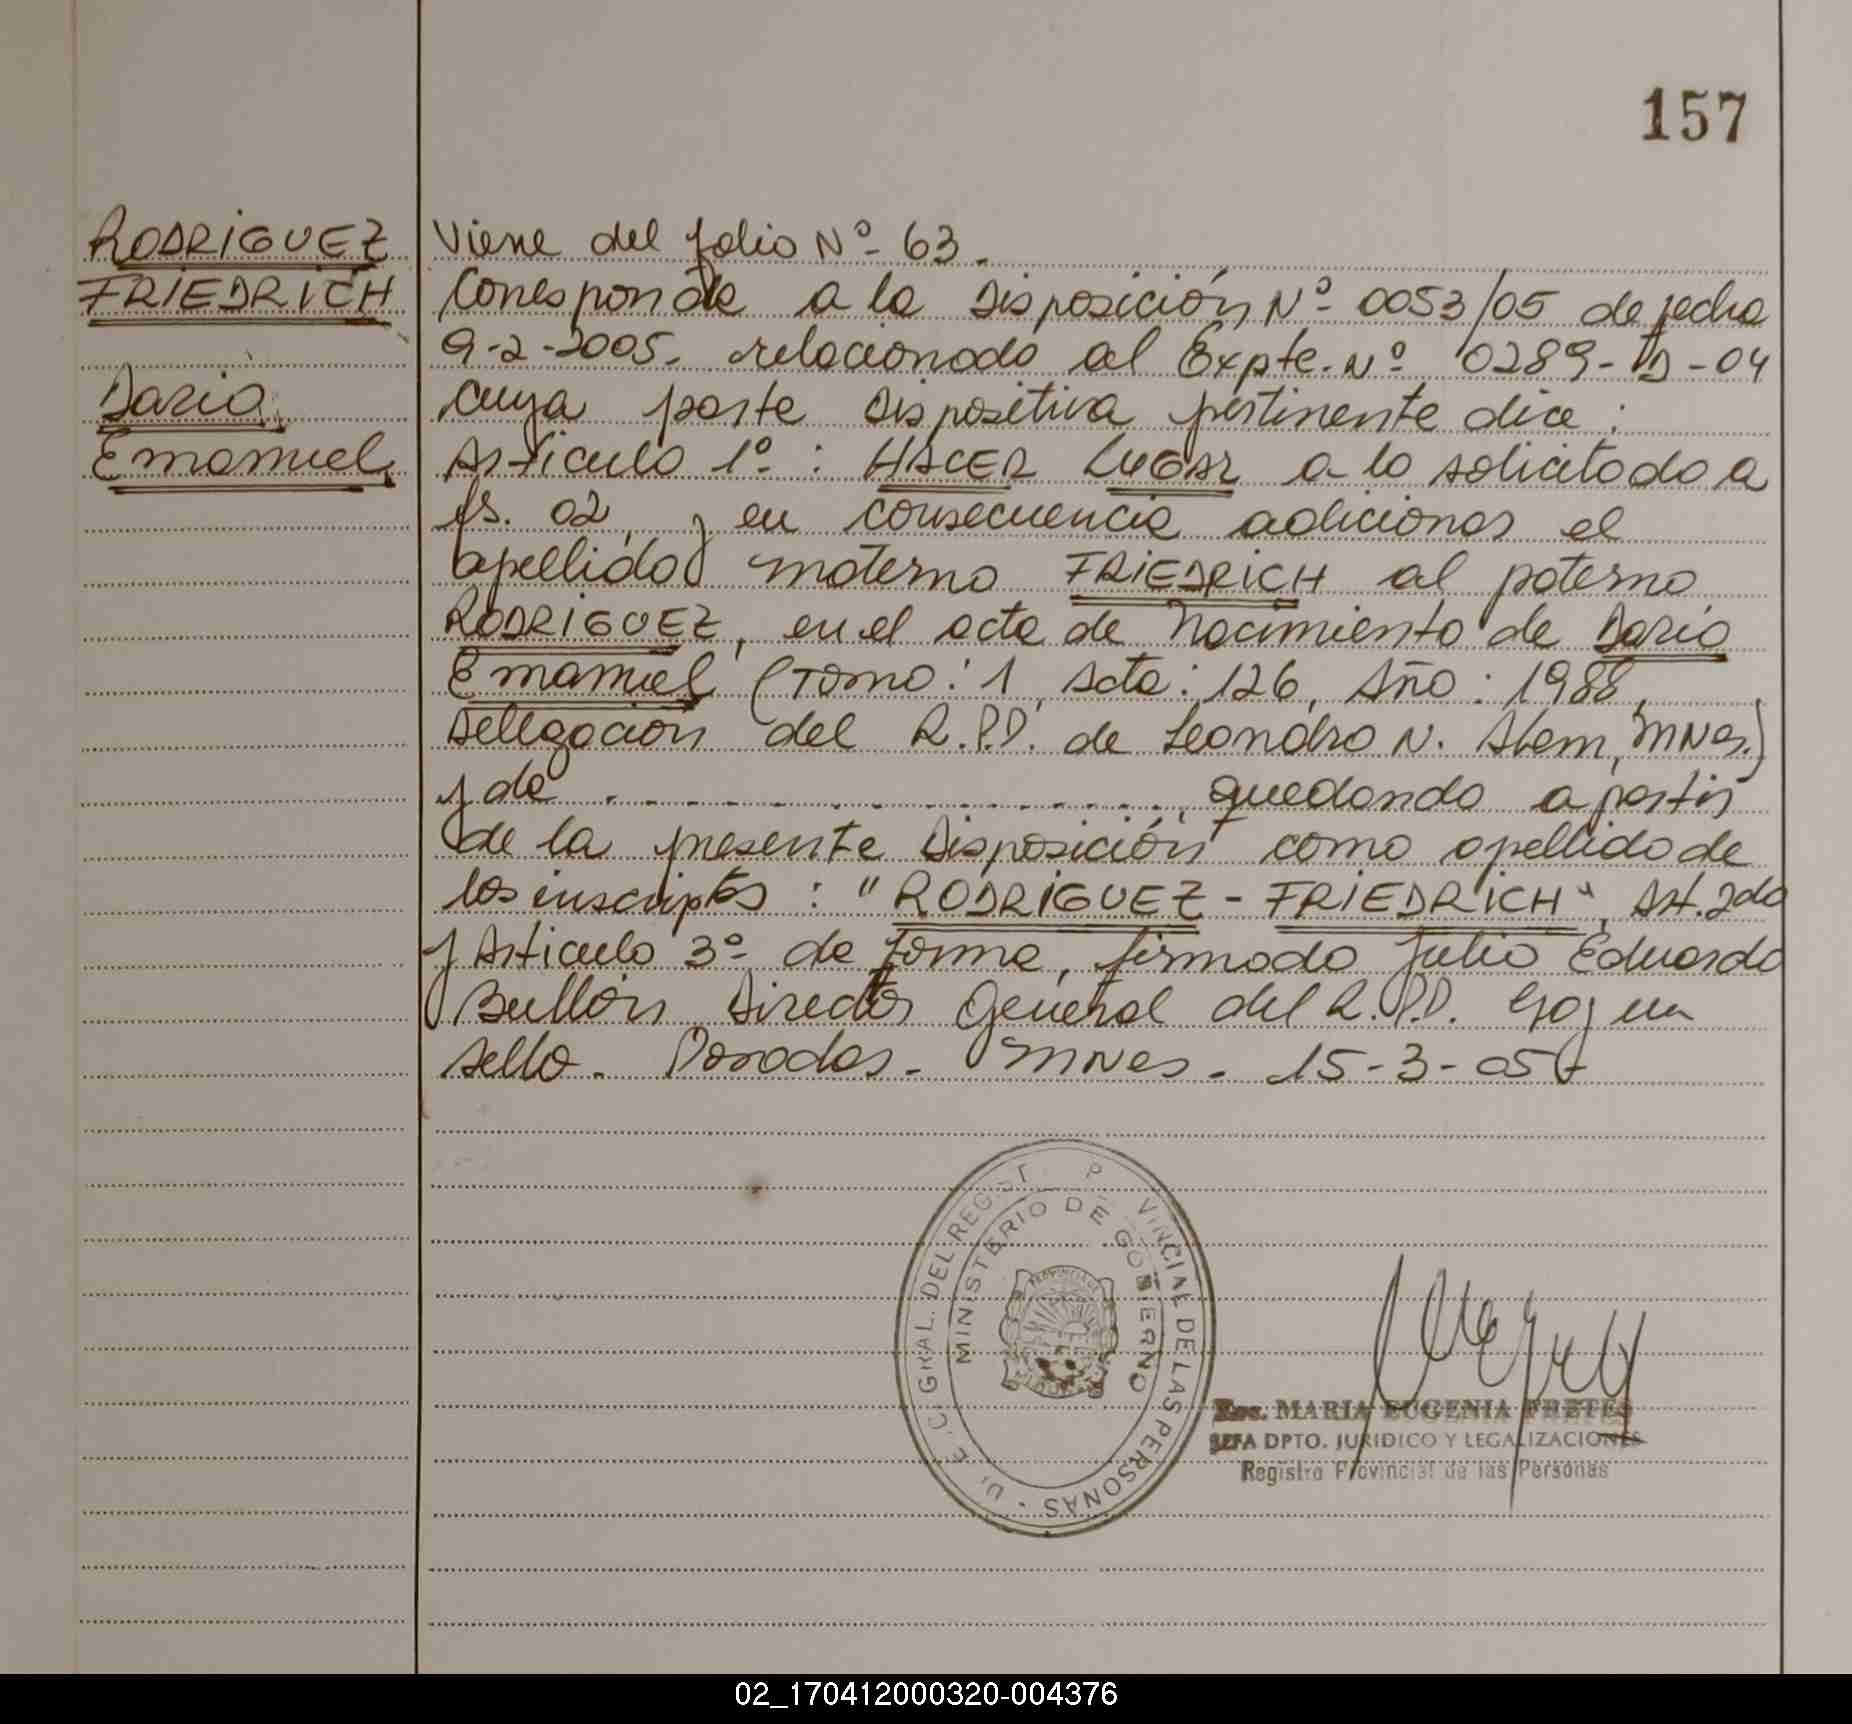 157
RODRIGUEZ
FRIEDRICH
Dario
Emanuel
Viene del folio Nº 63.
Corresponde a la Disposición Nº 0053/05 de fecha
9-2-2005. relacionado al Expte. Nº 0289-D-04
cuya parte dispositiva pertinente dice:
Articulo 1º: HACER LUGAR a lo solicitado a
fs. 02, y en consecuencia adicionar el
apellido materno FRIEDRICH al paterno
RODRIGUEZ, en el acta de Nacimiento de Dario
Emanuel (Tomo: 1, Acta: 126, Año: 1988,
Dellegacion del R.P.P. de Leandro N. Alem, Mnes.)
y de . . . . . . . . . . . . . . . . , quedando a partir
de la presente Disposición como apellido de
los inscriptos: "RODRIGUEZ - FRIEDRICH". Art. 2do
y Articulo 3º de forma, firmado Julio Eduardo
Bullón Director General del R.P.P. Hay un
sello. Posadas. Mnes. 15-3-05
DEL REGIST P VINCIAL DE LAS PERSONAS
MINISTERIO DE GOBIERNO
PROVINCIA DE
MARIA EUGENIA FRETES
JEFA DPTO. JURIDICO Y LEGALIZACIONES
Registro Provincial de las Personas
02_170412000320-004376